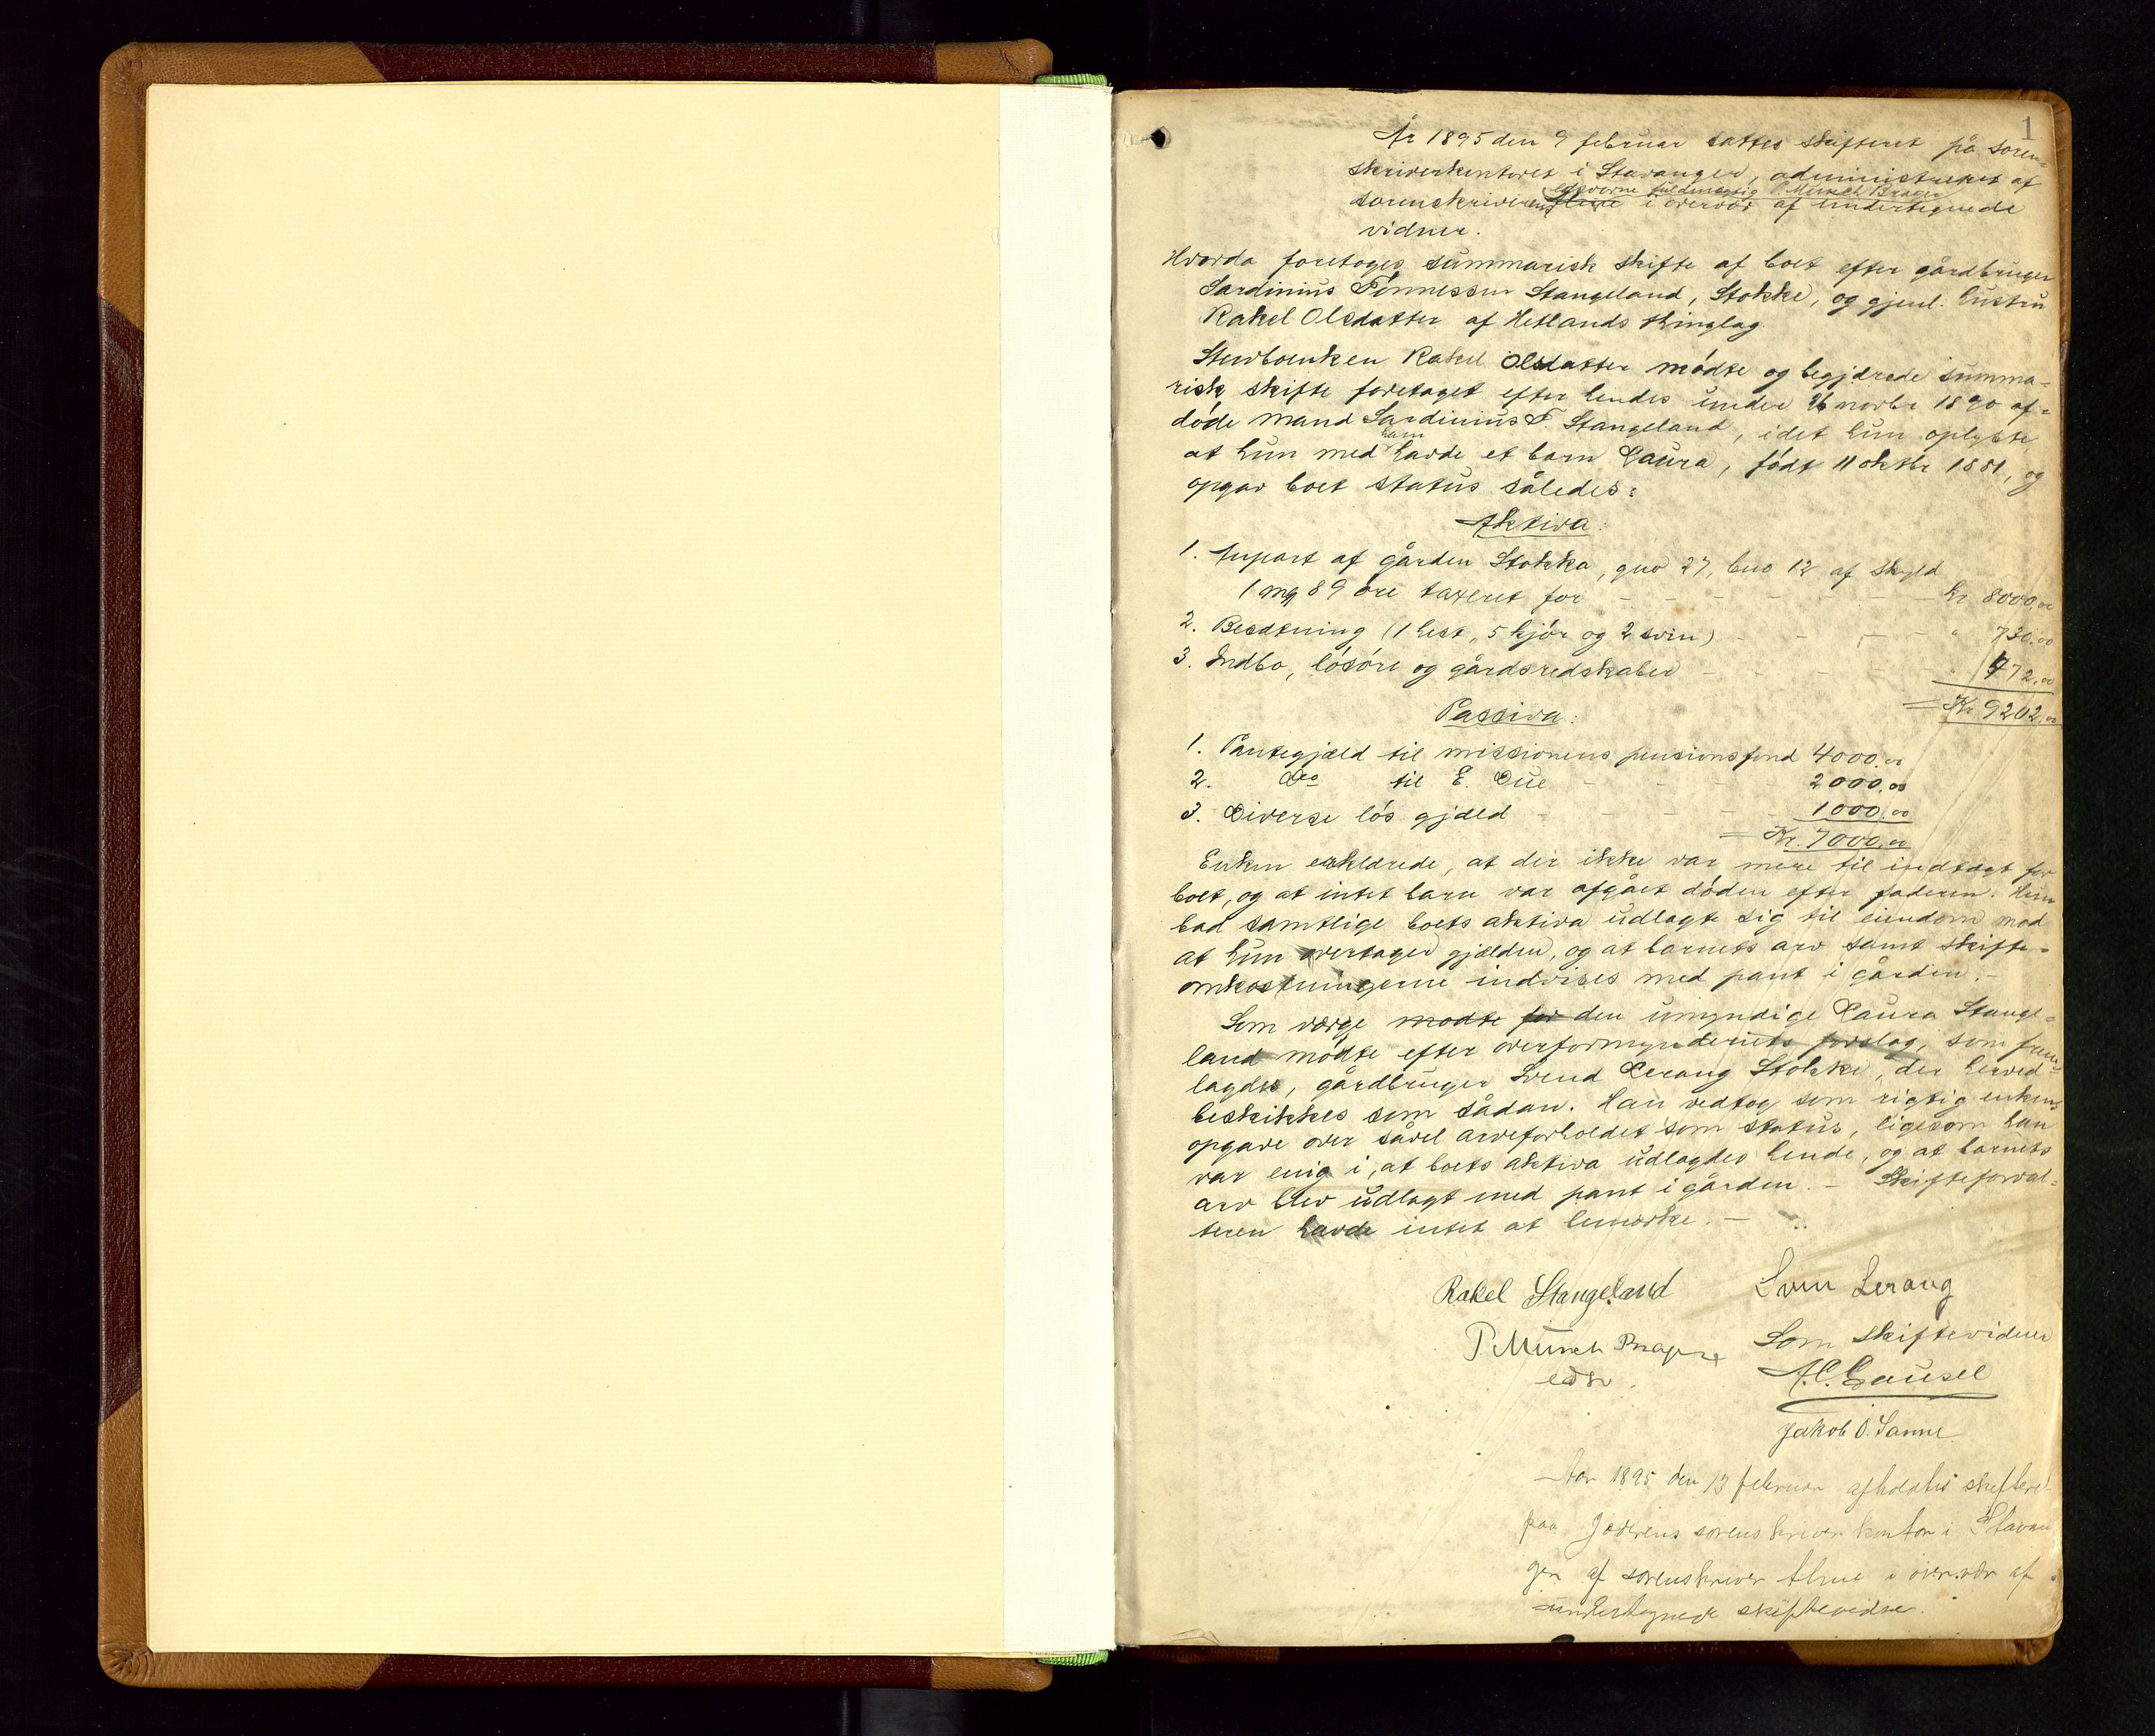 1
År 1895 den 9 februar sattes skifteret på soren=
skriverkontoret i Stavanger, administreret af
edsvorne fuldmægtig P. Munch Brager
sorenskriverens i overvær af undertegnede
vidner.
Hvorda foretoges summarisk skifte af boet efter gårdbruger
Sardinius Tönnessen Stangeland, Stokke, og gjenl. hustru
Rakel Olsdatter af Hetlands thinglag.
Stervboenken Rakel Olsdatter mödte og begjærede summa=
risk skifte foretaget efter hendes under 26 novbr 1890 af=
döde mand Sardinius T. Stangeland, idet hun oplyste
ham
at hun med havde et barn Laura, födt 11 oktbr 1881, og
opgav boet status således:
Aktiva:
1. Anpart af gården Stokka, gno 27, bno 12 af skyld
1 mg 89 öre taxeret for - - - - - - kr 8000.00
2. Besætning (1 hest, 5 kjör og 2 svin) - - - - " 730.00
3. Indbo, lösöre og gårdsredskaber - - - - " 472.00
= Kr. 9202.00
Passiva:
1. Pantegjæld til missionens pensionsfond 4000.00
2. Do til E. Due - - - 2000.00
3. Diverse lös gjæld - - - - 1000.00
= Kr. 7000.00
Enken erklærede, at der ikke var mere til indtægt for
boet, og at intet barn var afgået döden efter faderen. Hun
bad samtlige boets aktiva udlagt sig til eiendom mod
at hun overtager gjælden, og at barnets arv samt skifte=
omkostningerne indvises med pant i gården.-
Som værge modte for den umyndige Laura Stange=
land mödte efter overformynderiets forslag, som frem=
lagdes, gårdbruger Svend Lerang Stokke, der herved
beskikkes som sådan. Han vedtog som rigtig enkens
opgave over såvel arveforholdet som status, ligesom han
var enig i, at boets aktiva udlagdes hende, og at barnets
arv blev udlagt med pant i gården. - Skifteforval=
teren havde intet at bemærke. -
Rakel Stangeland Sven Lerang
P. Munch Brager Som skiftevidner
edsv. A. C. Gausel
Jakob O. Sanne
Aar 1895 den 13 februar afholdtes skifteret
paa Jæderens sorenskriver kontor i Stavan
ger af sorenskriver i overvær af
undertegnede skiftevidner.